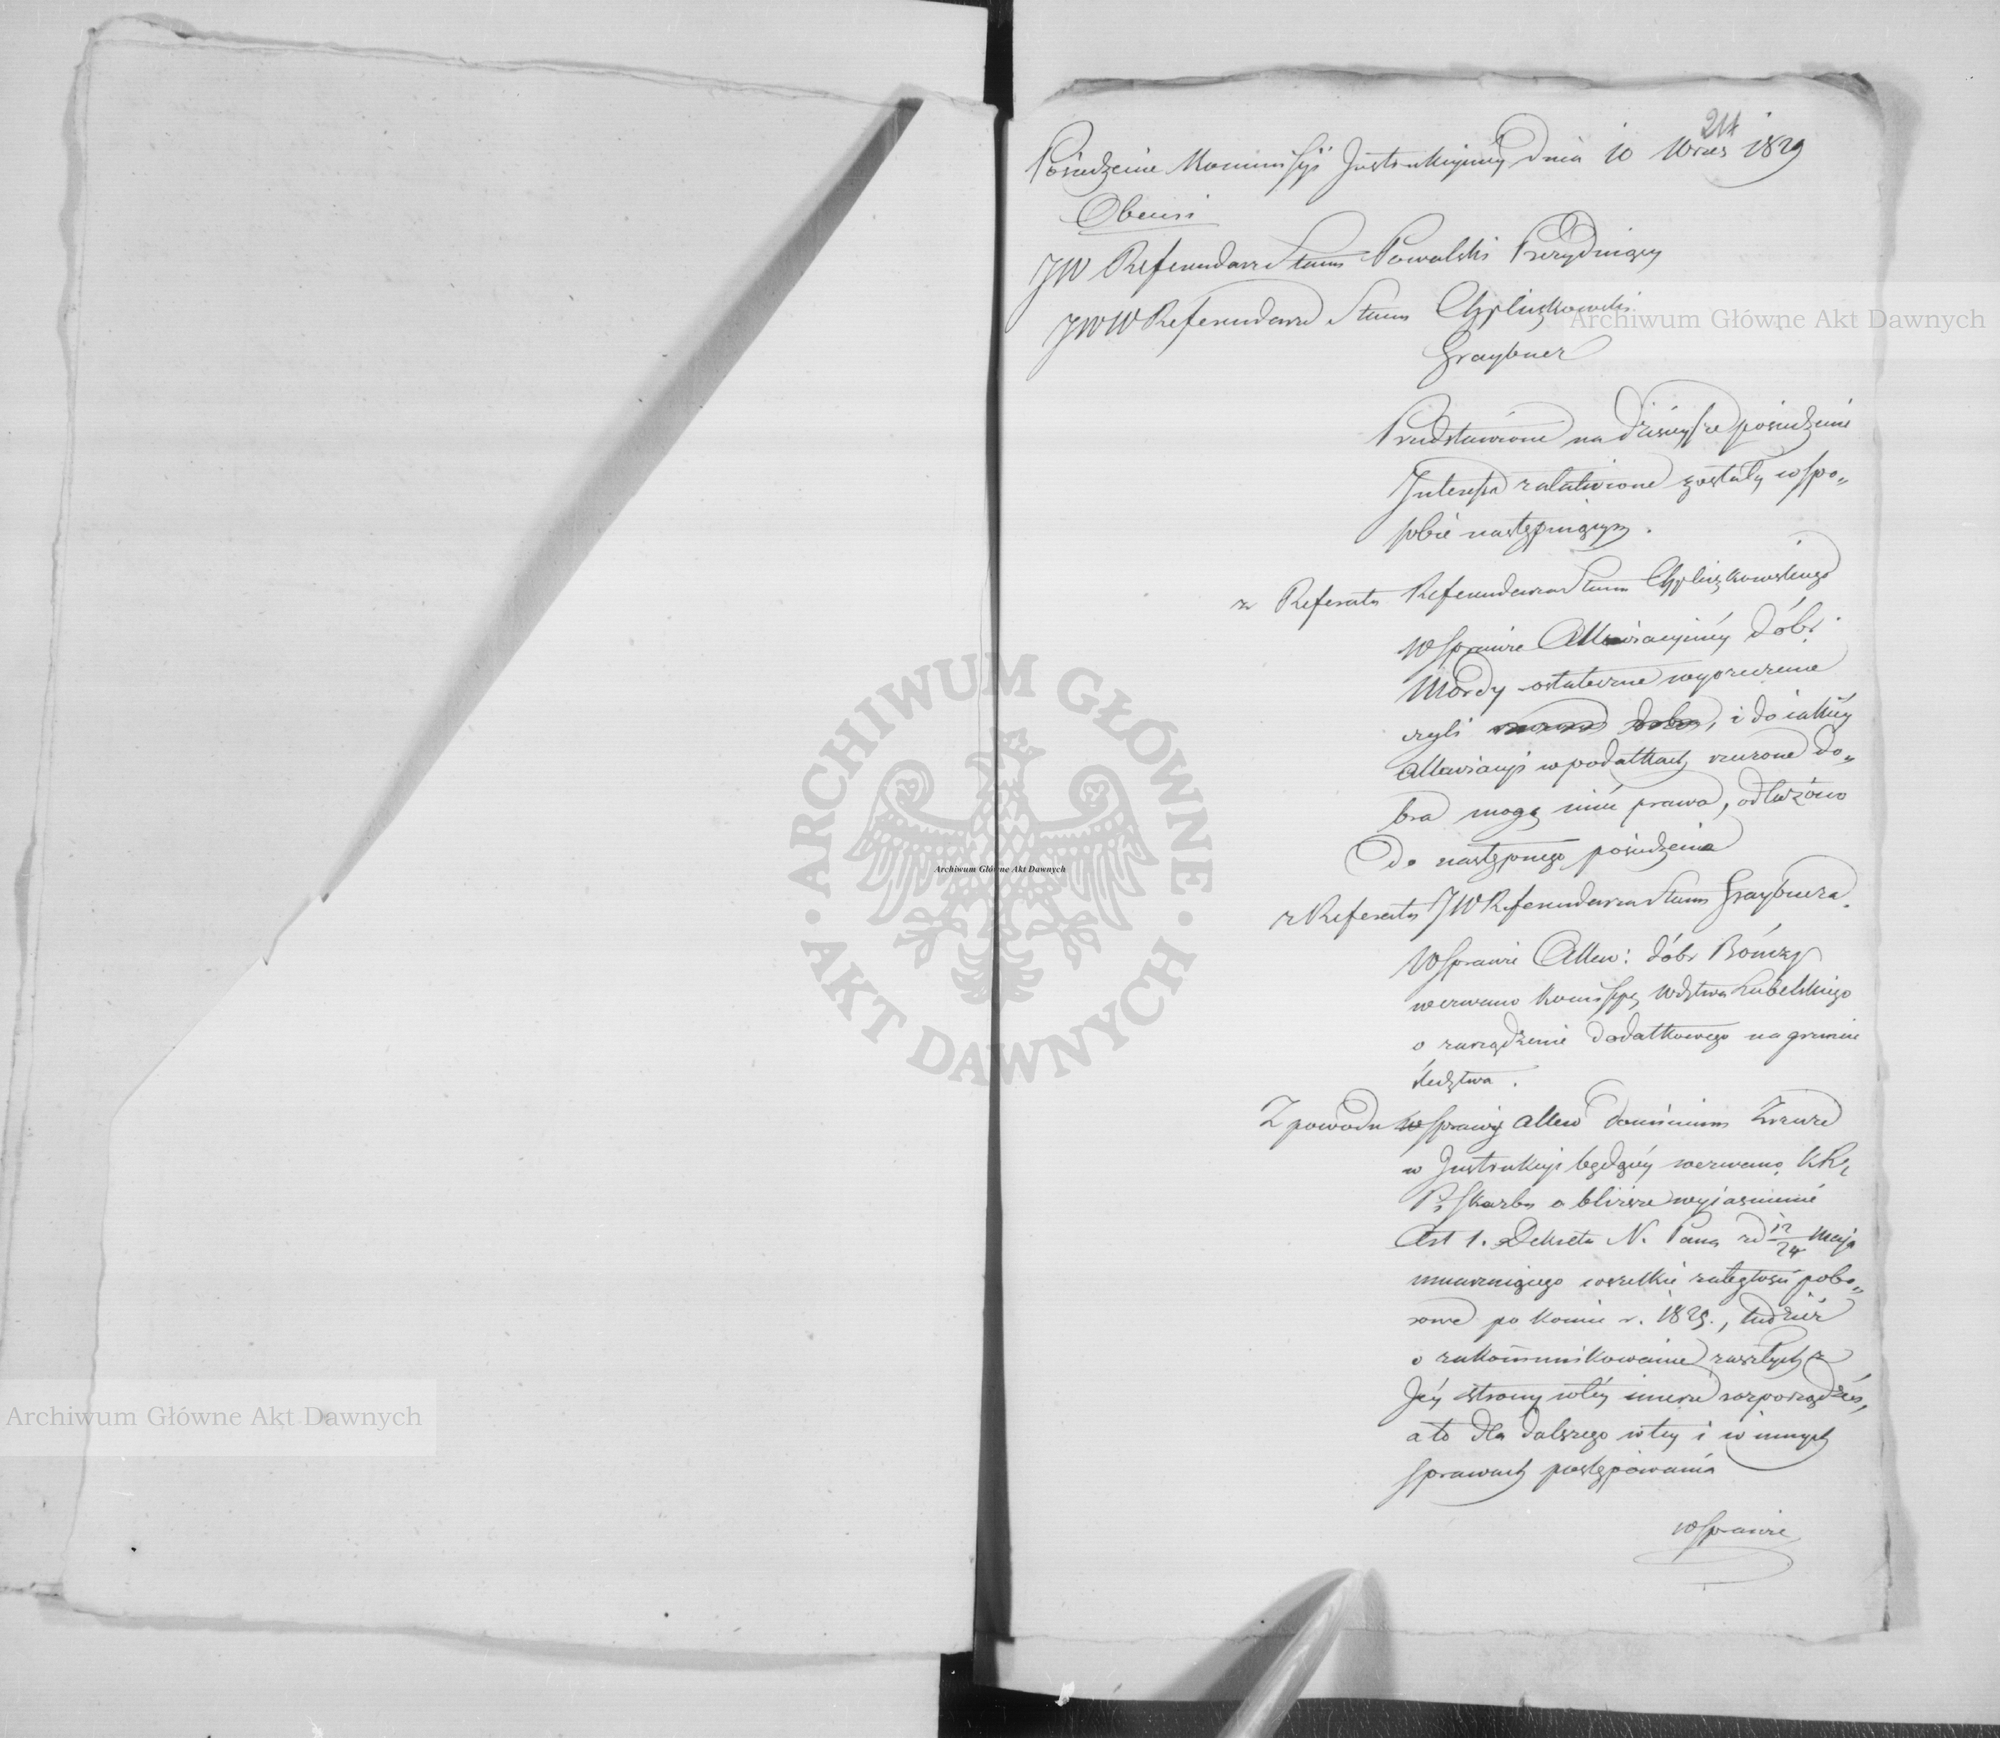 214
Posiedzenie Kommissyi Instrukcyiney dnia 10 Wrześ 1829
Obecni
JW Referendarz Stanu Kowalski Prezyduiący
JWW Referendarze Stanu
Graybner
Przedstawione na dzisieysze posiedzenie
Interessa załatwione zostały w spo„
sobie następuiącym.
z Referatu Referendarza Stanu
W sprawie Allewiacyiney dóbr
Mordy ostateczne wyrzeczenie
czyli i do iakiey
allewiacyi w podatkach rzeczone do„
bra mogą mieć prawo, odłożono
do następnego posiedzenia
z Referatu JW Referendarza Stanu Graybnera.
W sprawie Allew: dóbr Bończy
wezwano Kommissyę Wdztwa Lubelskiego
o zarządzenie dodatkowego na gruncie
śledztwa.
Z powodu sprawy allew dominium
w Instrukcyi będącey wezwano KR
P. Skarbu o bliższe wyiasnienie
Art 1. Dekretu N. Pana z d 12/24 Maja
umarzaiącego wszelkie zaległości pobo„
rowe po koniec r. 1825., tudzież
o zakommunikowanie zaszłych z
Jéy strony w téy mierze rozporządzeń,
a to dla dalszego w tey i w innych
sprawach postępowania
w sprawie
Archiwum Główne Akt Dawnych
Archiwum Główne Akt Dawnych
Archiwum Główne Akt Dawnych
ARCHIWUM GŁÓWNE · AKT DAWNYCH ·